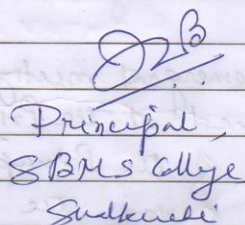 Principal,
SBMS College
Sualkuchi